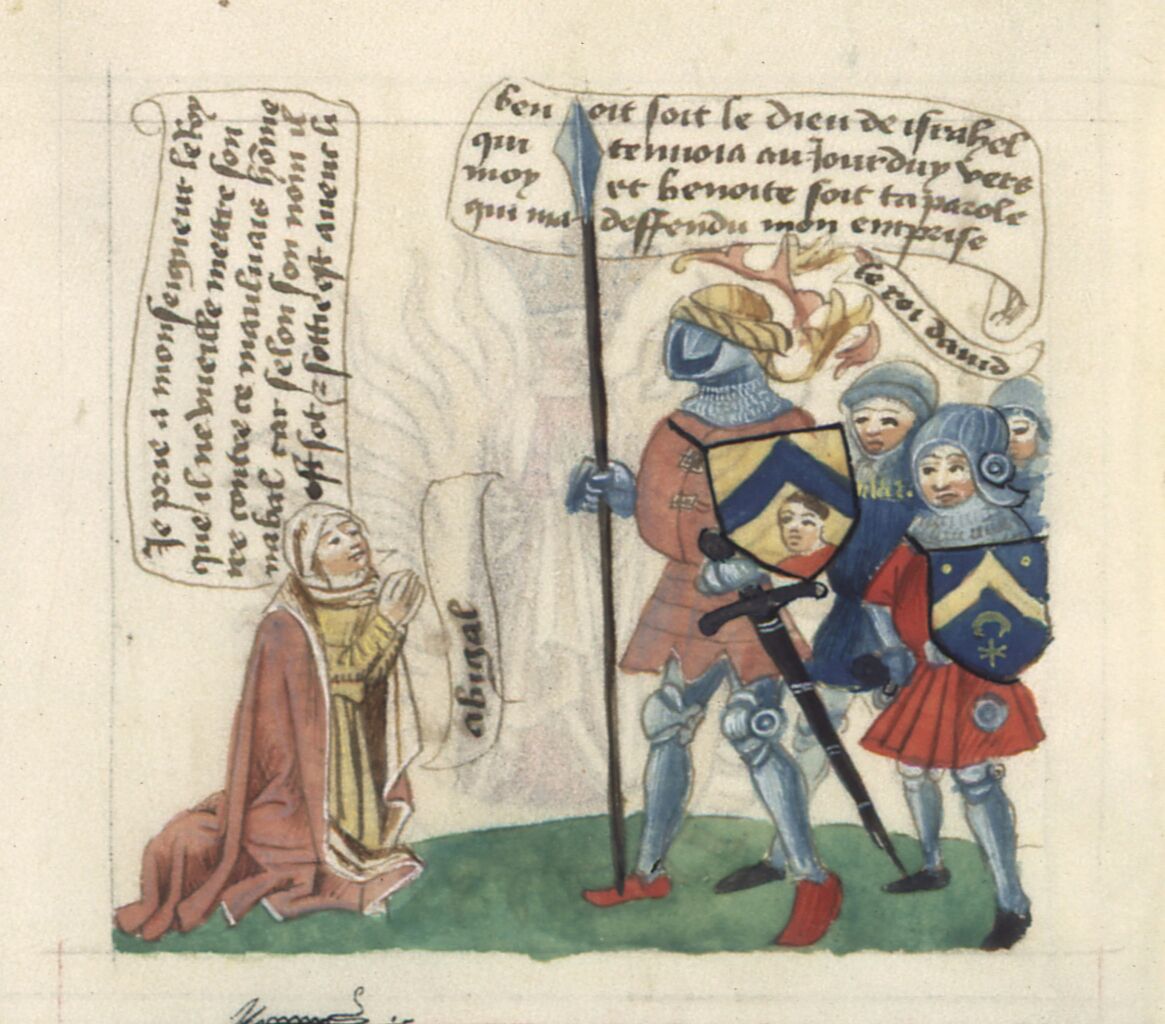 Je prie a monseigneur le roy
que il ne vueille mettre son
ne contre ce mauluais hõme
nabal car selon son nom il
est sot z sottie est auecq li
abigal
benoit soit le dieu de israhel
qui tenuoia au Jourduy vers
moy et benoite soit ta parole
qui ma deffendu mon emprise
le roi dauid